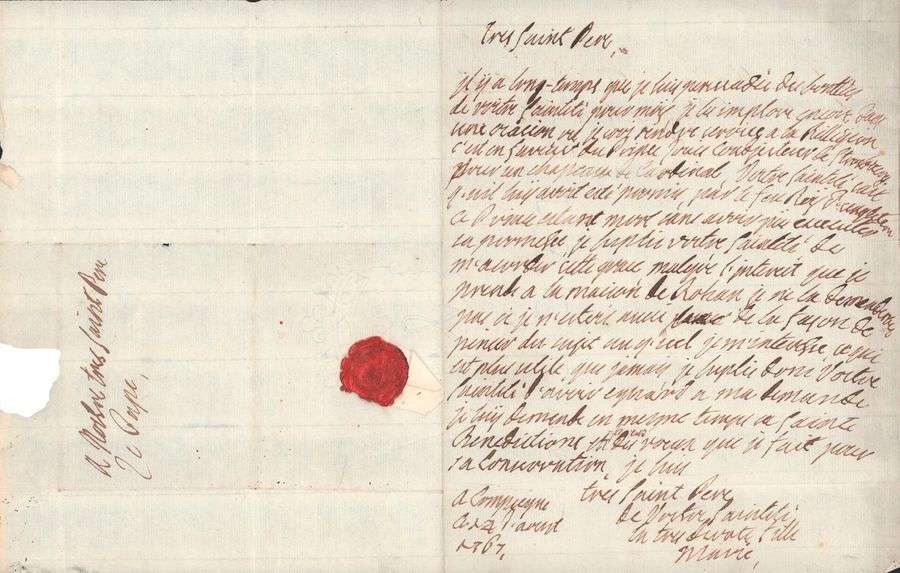 A Nostre tres saint Pere
Le Pape,
tres saint Pere,
il y a long-temps que je suis persuadée des bontées
de vostre sainteté pour moi, je les implore encore dans
une ocasion ou je crois rendre service a la Religion
c'est en faveur du Prince Louis Coadjuteur de Strasbourg
pour un chapeau de Cardinal Vostre sainteté sait
qu'il luy avoit esté promis par le feu Roy d'angleterre
ce Prince estant mort sans avoir pu executer
sa promesse je suplie vostre sainteté de
m'acorder cette grace malgré l'interest que je
prends a la maison de Rohan je ne la demanderois
pas si je n'estois aussi de la façon de
penser du sujet auquel je m'interesse ce qui
est plus utile que jamais, je suplie donc Vostre
sainteté d'avoir egard a ma demande
je luy demende en mesme temps sa sainte
Benediction voeux que je fait pour
sa conservation, je suis
tres saint Pere
de Vostre sainteté
la tres devote fille
Marie,
a Compiegne
ce 24 d'aout
1767,